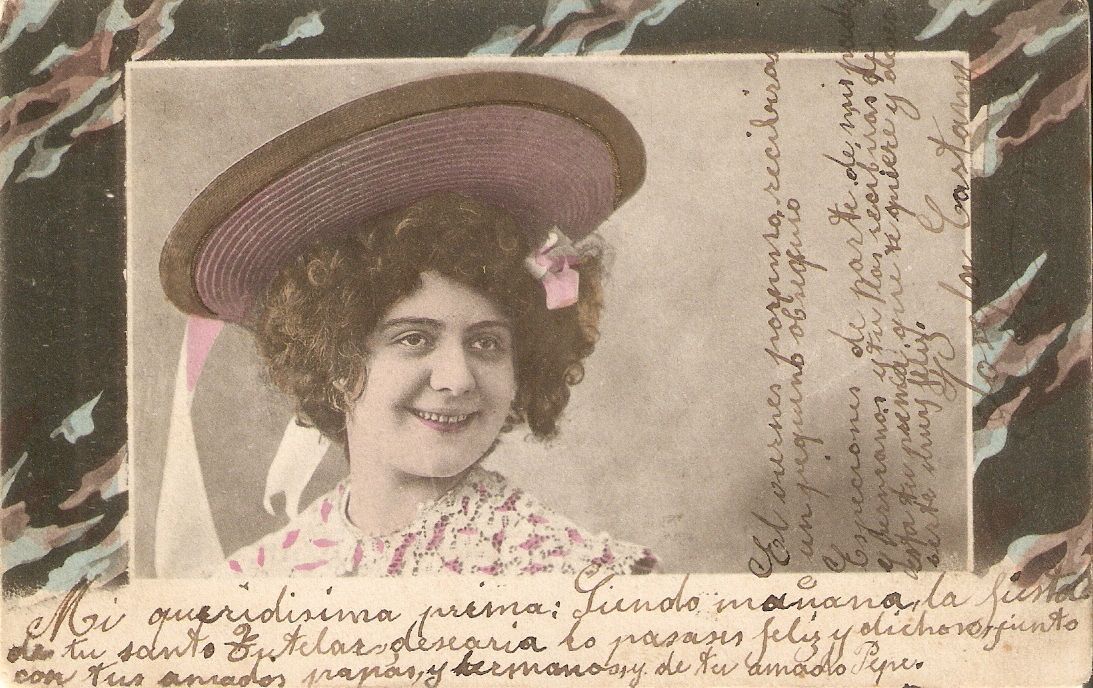 Mi queridisima prima: Siendo mañana, la fiesta
de tu santo Tutelar desearia lo pasases feliz y dichoso, junto
con tus amados papas, y hermanos, y de tu amado Pepe.
El viernes proximo, recibiras
un pequeno obsequio
Espreciones de parte de mis padres
y hermanos y tu las recibiras de
esta tu prima que te quiere y desea
verte muy feliz.
Castany